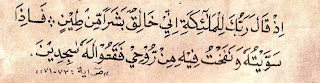 اِذْ قَالَ رَبُّكَ لِلْمَلٰٓئِكَةِ اِنِّيْ خَالِقٌۢ بَشَرًا مِّنْ طِيْنٍ فَاِذَا
سَوَّيْتُهٗ وَنَفَخْتُ فِيْهِ مِنْ رُّوْحِيْ فَقَعُوْا لَهٗ سٰجِدِيْنَ